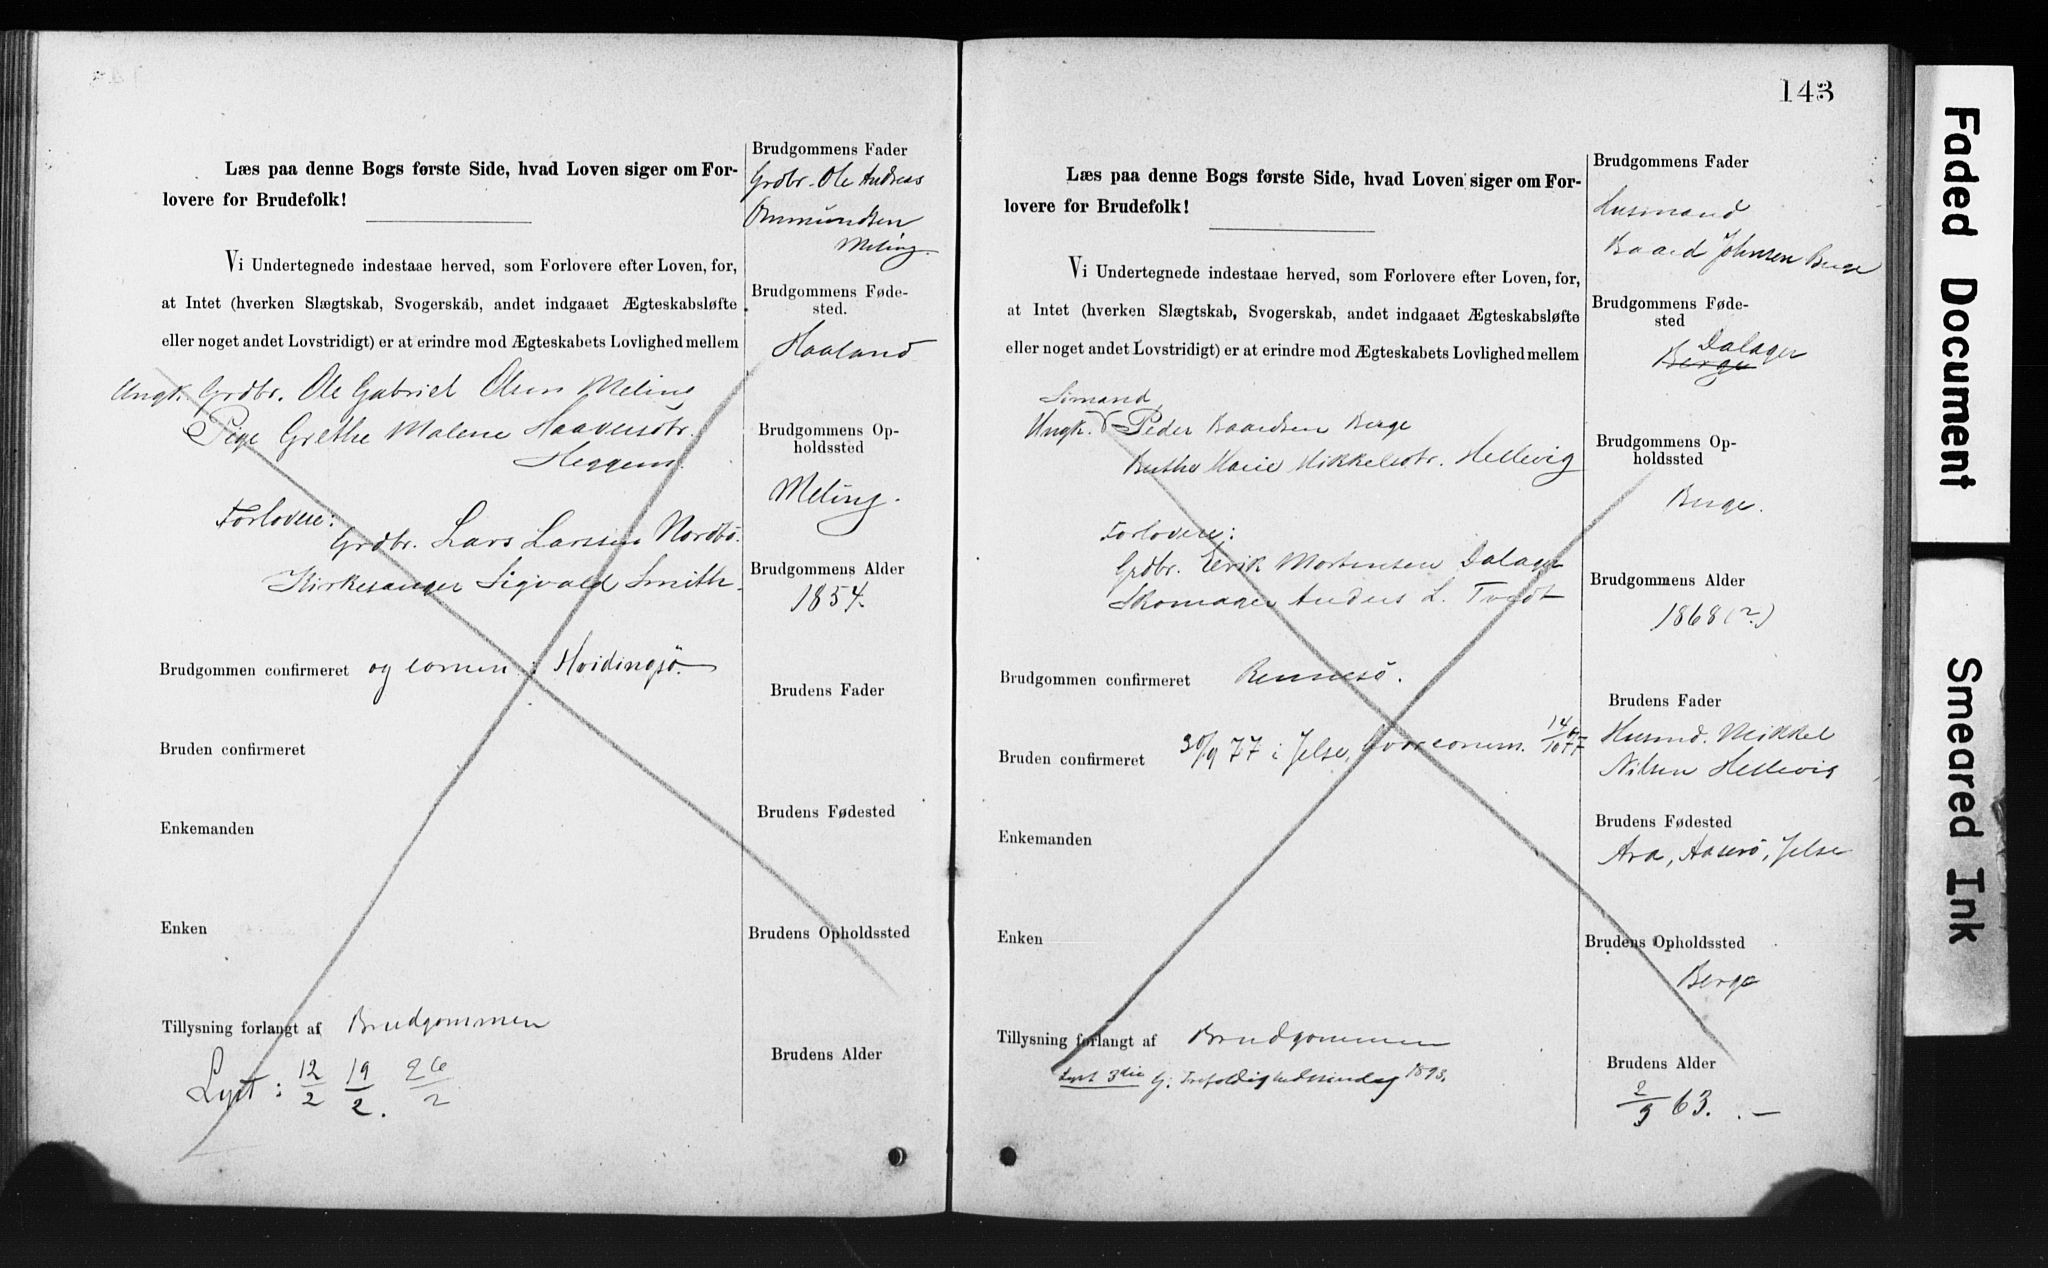 Læs paa denne Bogs første Side, hvad Loven siger om For-
lovere for Brudefolk!
Vi Undertegnede indestaae herved, som Forlovere efter Loven, for,
at Intet (hverken Slægtskab, Svogerskab, andet indgaaet Ægteskabsløfte
eller noget andet Lovstridigt) er at erindre mod Ægteskabets Lovlighed mellem
Ungk. Grdbr. Ole Gabriel Olsen Meling
Pige Grethe Malene Haaversdtr.
Heggem
Forlovere:
Grdbr. Lars Larssen Nordbö.
Kirkesanger Sigvald Smith.
Brudgommen confirmeret og comm. i Hvidingsö.
Bruden confirmeret
Enkemanden
Enken
Tillysning forlangt af Brudgommen
Lyst: 12/2 19/2. 26/2
Brudgommens Fader
Grdbr. Ole Andreas
Ommundsen
Meling.
Brudgommens Føde-
sted.
Haaland
Brudgommens Op-
holdssted
Meling.
Brudgommens Alder
1854.
Brudens Fader
Brudens Fødested
Brudens Opholdssted
Brudens Alder
143
Læs paa denne Bogs første Side, hvad Loven siger om For-
lovere for Brudefolk!
Vi Undertegnede indestaae herved, som Forlovere efter Loven, for,
at Intet (hverken Slægtskab, Svogerskab, andet indgaaet Ægteskabsløfte
eller noget andet Lovstridigt) er at erindre mod Ægteskabets Lovlighed mellem
Sömand
Ungk. Peder Baardsen Berge
Berthe Marie Mikkelsdtr. Hellevig
Forlovere:
Grdbr. Erik Mortensen Dalager
Skomager Anders L. Tvedt
Brudgommen confirmeret Rennesö.
Bruden confirmeret 30/9 77 i Jelse, hvor comm. 14/10 77
Enkemanden
Enken
Tillysning forlangt af Brudgommen
Lyst 3die G. Trefoldighedssöndag 1893.
Brudgommens Fader
Husmand
Baard Johnsen Berge
Brudgommens Føde-
sted
Dalager
Berge
Brudgommens Op-
holdssted
Berge.
Brudgommens Alder
1868 (?)
Brudens Fader
Husmd. Mikkel
Nilsen Hellevig
Brudens Fødested
Ara, Aaserö, Jelse
Brudens Opholdssted
Berge
Brudens Alder
2/9 63.
Faded Document
Smeared Ink